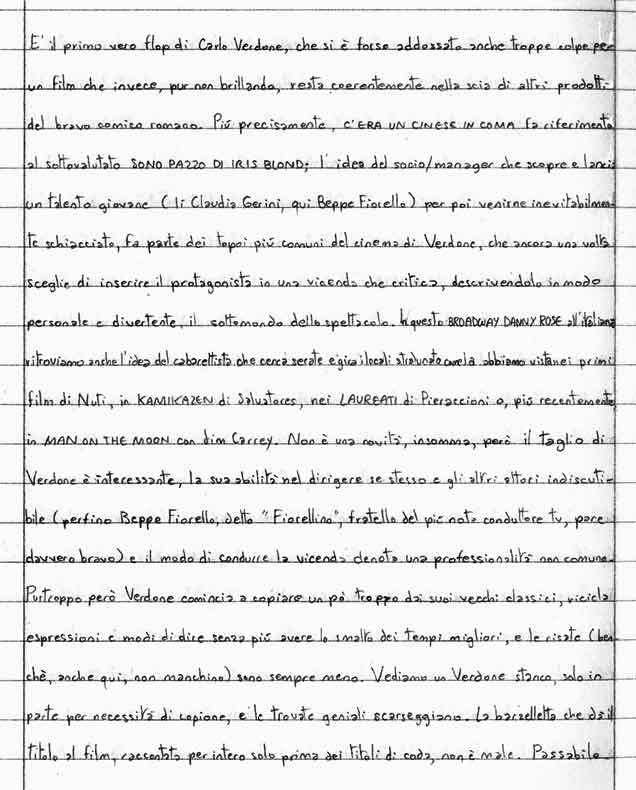 E' il primo vero flop di Carlo Verdone, che si è forse addossato anche troppe colpe per
un film che invece, pur non brillando, resta coerentemente nella scia di altri prodotti
del bravo comico romano. Più precisamente, C'ERA UN CINESE IN COMA fa riferimento
al sottovalutato SONO PAZZO DI IRIS BLOND; l'idea del socio/manager che scopre e lancia
un talento giovane (lì Claudia Gerini, qui Beppe Fiorello) per poi venirne inevitabilmen-
te schiacciato, fa parte dei topoi più comuni del cinema di Verdone, che ancora una volta
sceglie di inserire il protagonista in una vicenda che critica, descrivendolo in modo
personale e divertente, il sottomondo dello spettacolo. In questo BROADWAY DANNY ROSE all'italiana
ritroviamo anche l'idea del cabarettista che cerca serate e gira i locali stralunato come la abbiamo vista nei primi
film di Nuti, in KAMIKAZEN di Salvatores, nei LAUREATI di Pieraccioni o, più recentemente
in MAN ON THE MOON con Jim Carrey. Non è una novità, insomma, però il taglio di
Verdone è interessante, la sua abilità nel dirigere se stesso e gli altri attori indiscuti-
bile (perfino Beppe Fiorello, detto "Fiorellino", fratello del più noto conduttore tv, pare
davvero bravo) e il modo di condurre la vicenda denota una professionalità non comune.
Purtroppo però Verdone comincia a copiare un pò troppo dai suoi vecchi classici, ricicla
espressioni e modi di dire senza più avere lo smalto dei tempi migliori, e le risate (ben-
chè, anche qui, non manchino) sono sempre meno. Vediamo un Verdone stanco, solo in
parte per necessità di copione, e le trovate geniali scarseggiano. La barzelletta che dà il
titolo al film, raccontata per intero solo prima dei titoli di coda, non è male. Passabile.